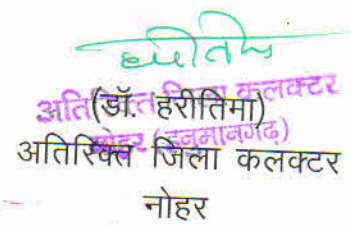 अतिरिक्त जिला कलक्टर
नोहर (हनुमानगढ़)
(डॉ. हरीतिमा)
अतिरिक्त जिला कलक्टर
नोहर